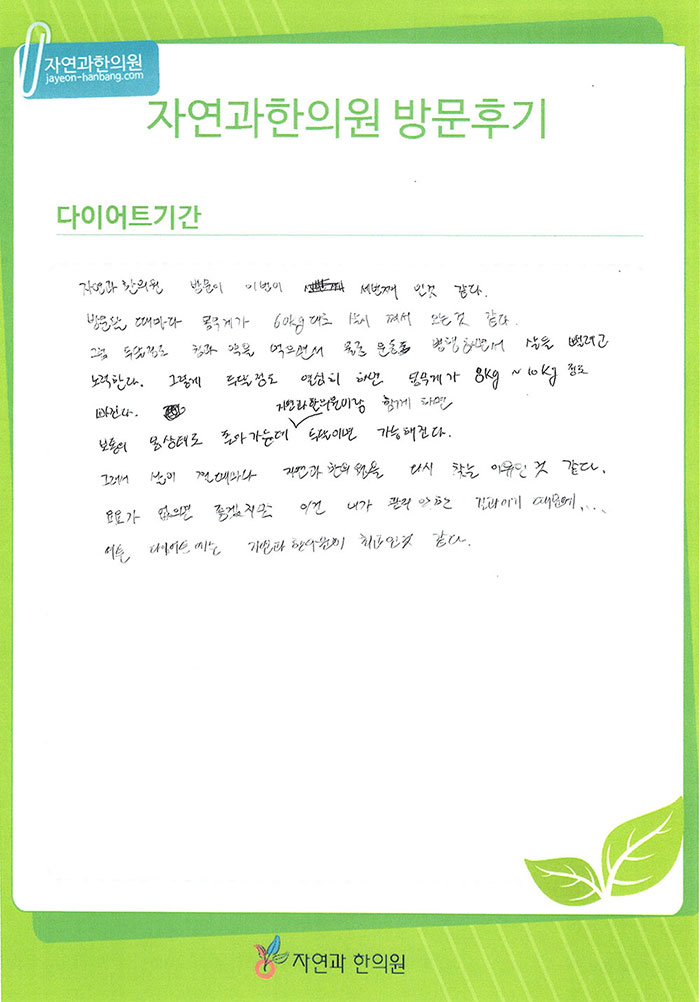 자연과한의원
jayeon-hanbang.com
자연과한의원 방문후기
다이어트기간
자연과 한의원 방문이 이번이 세번째 인것 같다.
방문할 때마다 몸무게가 60kg대로 다시 쪄서 오는것 같다.
그럼 두달정도 침과 약을 먹으면서 물론 운동도 병행하면서 살을 빼려고
노력한다. 그렇게 두달정도 열심히 하면 몸무게가 8kg ~ 10kg 정도
빠진다. 자연과한의원이랑 함께 하면
보통의 몸상태로 돌아가는데 두달이면 가능해진다.
그래서 살이 찔때마다 자연과 한의원을 다시 찾는 이유인 것 같다.
요요가 없으면 좋겠지만 이건 내가 관리 안한 결과이기 때문에....
다이어트에는 자연과 한의원이 최고인것 같다.
자연과 한의원